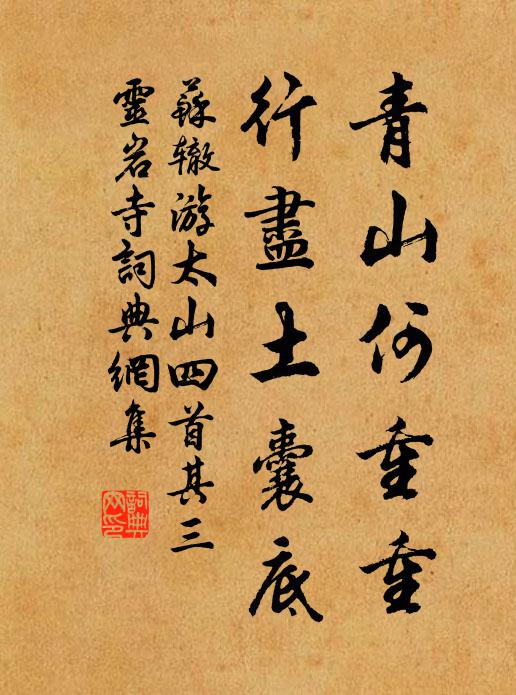 青山何重重
行盡土囊底
蘇轍游太山四首其三
靈岩寺詞典網集
詞典
网印